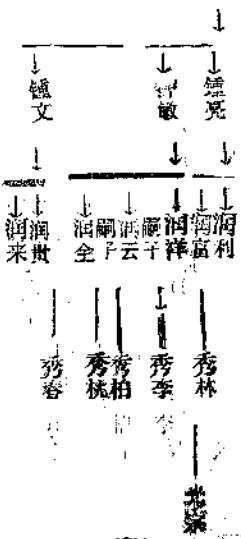 锺亮
智敏
锺文
润利
润富
润祥
嗣子
润云
嗣子
润全
润贵
润来
秀林
秀李
秀柏
秀桃
秀春